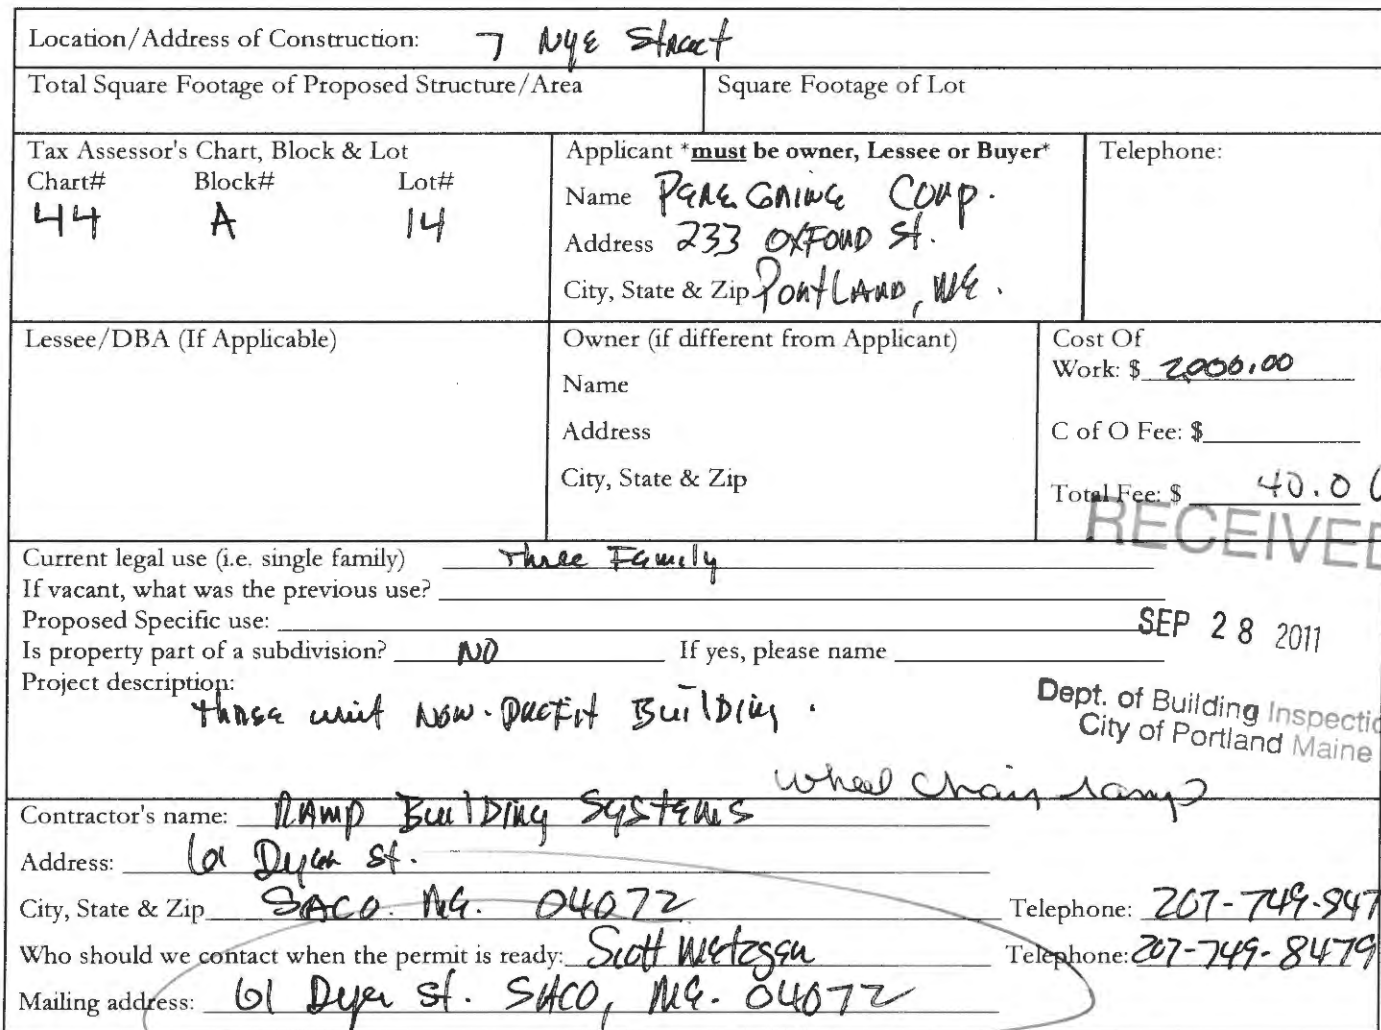 Location/Address of Construction: 7 Nye Street
Total Square Footage of Proposed Structure/Area
Square Footage of Lot
Tax Assessor's Chart, Block & Lot
Chart# Block# Lot#
44 A 14
Applicant *must be owner, Lessee or Buyer*
Name Peregrine Corp.
Address 233 Oxford St.
City, State & Zip Portland, ME.
Telephone:
Lessee/DBA (If Applicable)
Owner (if different from Applicant)
Name
Address
City, State & Zip
Cost Of
Work: $ 2,000.00
C of O Fee: $
Total Fee: $ 40.0
RECEIVED
Current legal use (i.e. single family) Three Family
If vacant, what was the previous use?
Proposed Specific use:
SEP 28 2011
Is property part of a subdivision? NO If yes, please name
Project description:
three unit Non-Profit Building.
Dept. of Building Inspectio
City of Portland Maine
Wheel Chair ramp
Contractor's name: Ramp Building Systems
Address: 61 Dyer St.
City, State & Zip SACO. ME. 04072 Telephone: 207-749-847
Who should we contact when the permit is ready: Scott Metzger Telephone: 207-749-8479
Mailing address: 61 Dyer St. SACO, ME. 04072